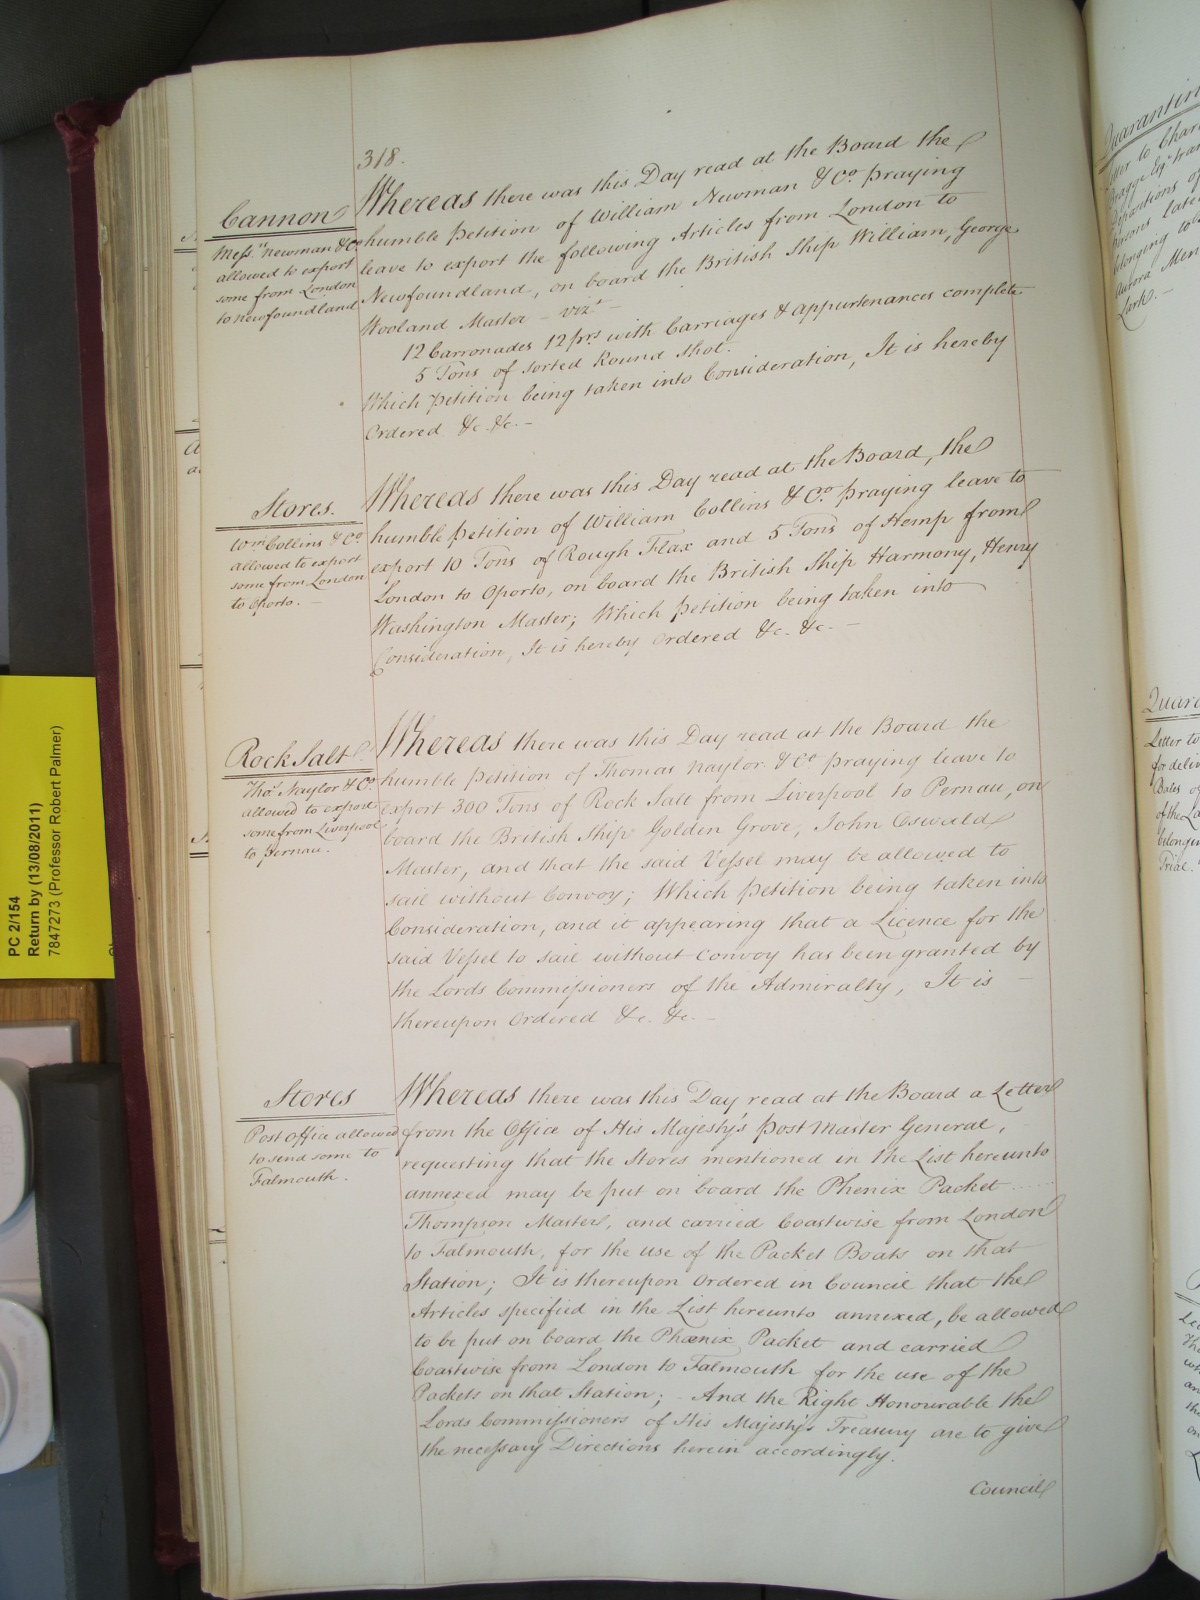 318.
Cannon
Messrs. Newman & Co.
allowed to export
some from London
to Newfoundland
Whereas there was this Day read at the Board the
humble Petition of William Newman & Co. praying
leave to export the following Articles from London to
Newfoundland, on board the British Ship William, George
Wooland Master - vizt. -
12 Carronades 12 prs with Carriages & appurtenances complete
5 Tons of sorted Round Shot.
Which Petition being taken into Consideration, It is hereby
Ordered &c. &c. -
Stores.
Wm. Collins & Co.
allowed to export
some from London
to Oporto. -
Whereas there was this Day read at the Board, the
humble Petition of William Collins & Co. praying leave to
export 10 Tons of Rough Flax and 5 Tons of Hemp from
London to Oporto, on board the British Ship Harmony, Henry
Washington Master; Which Petition being taken into
Consideration, It is hereby Ordered &c. &c. -
Rock Salt.
Thos. Naylor & Co.
allowed to export
some from Liverpool
to Pernau.
Whereas there was this Day read at the Board the
humble Petition of Thomas Naylor & Co. praying leave to
export 300 Tons of Rock Salt from Liverpool to Pernau, on
board the British Ship Golden Grove, John Oswald
Master, and that the said Vessel may be allowed to
sail without Convoy; Which Petition being taken into
Consideration, and it appearing that a Licence for the
said Vessel to sail without Convoy has been granted by
the Lords Commissioners of the Admiralty, It is -
thereupon Ordered &c. &c. -
Stores
Post Office allowed
to send some to
Falmouth.
Whereas there was this Day read at the Board a Letter
from the Office of His Majesty's Post Master General,
requesting that the Stores mentioned in the List hereunto
annexed may be put on board the Phenix Packet ......
Thompson Master, and carried Coastwise from London
to Falmouth, for the use of the Packet Boats on that
Station; It is thereupon Ordered in Council that the
Articles specified in the List hereunto annexed, be allowed
to be put on board the Phœnix Packet and carried
Coastwise from London to Falmouth for the use of the
Packets on that Station; - And the Right Honourable the
Lords Commissioners of His Majesty's Treasury are to give
the necessary Directions herein accordingly.
Council
PC 2/154
Return by (13/08/2011)
7847273 (Professor Robert Palmer)